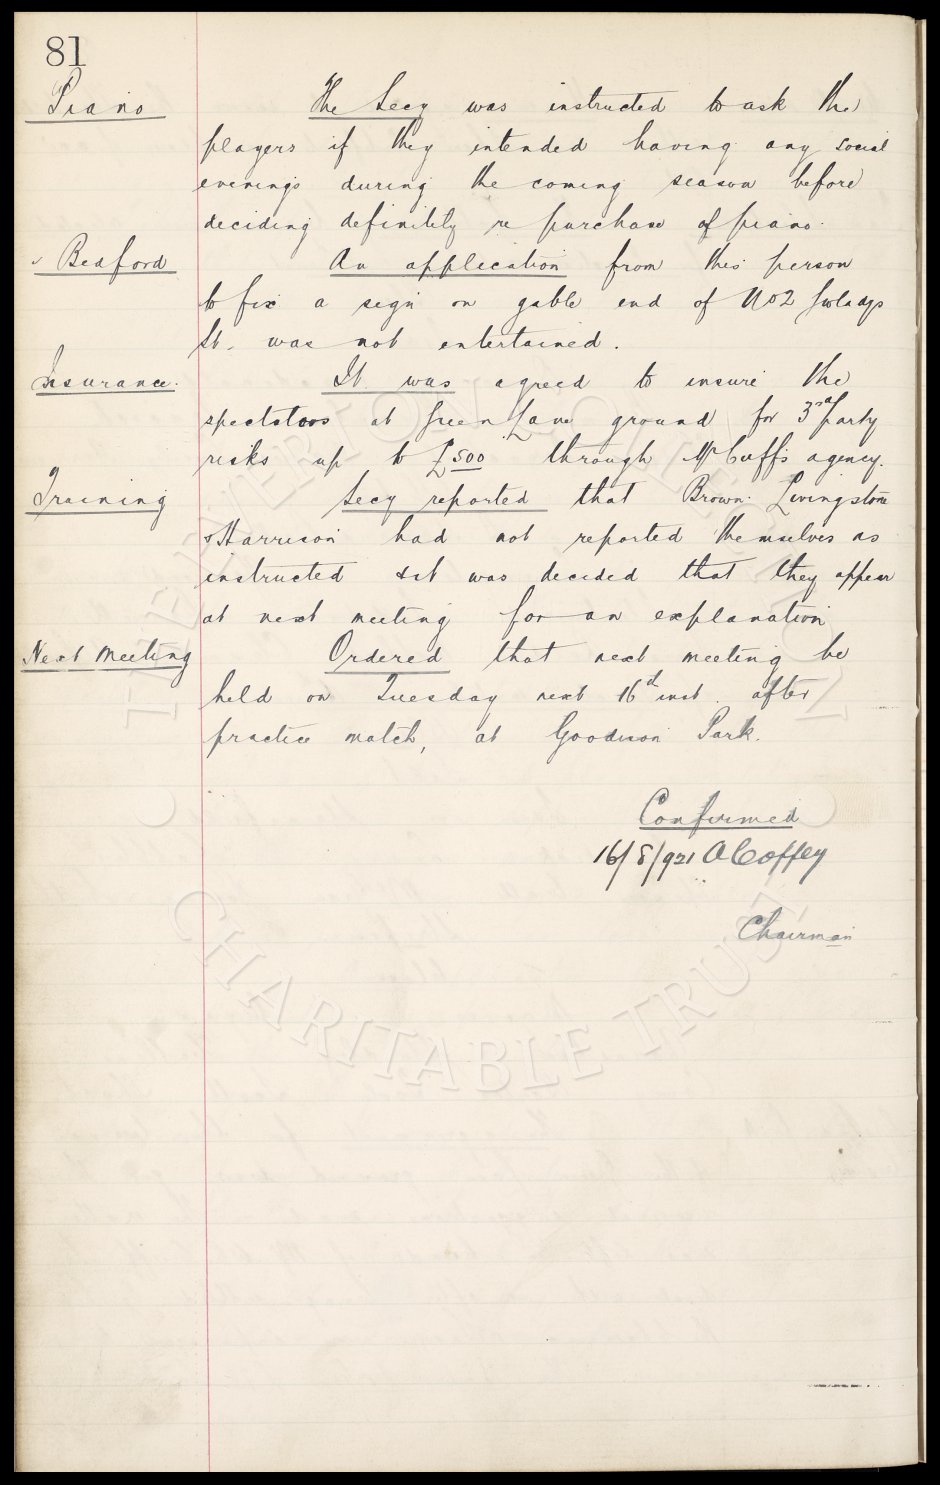 81
Piano The Secy was instructed to ask the
players if they intended having any social
evenings during the coming season before
deciding definitely re purchase of piano.
Beaford An application from this person
to fix a sign on gable end of No 2
St. was not entertained.
Insurance. It was agreed to insure the
spectators at Green Lane ground for 3rd party
risks up to £500 through Mr Cuff's agency.
Training Secy reported that Brown. Livingstone
& Harrison had not reported themselves as
instructed & it was decided that they appear
at next meeting for an explanation
Next Meeting Ordered that next meeting be
held on Tuesday next 16th inst. after
practice match, at Goodison Park.
Confirmed
16/8/921 A Coffey
Chairman
THE EVERTON COLLECTION
CHARITABLE TRUST